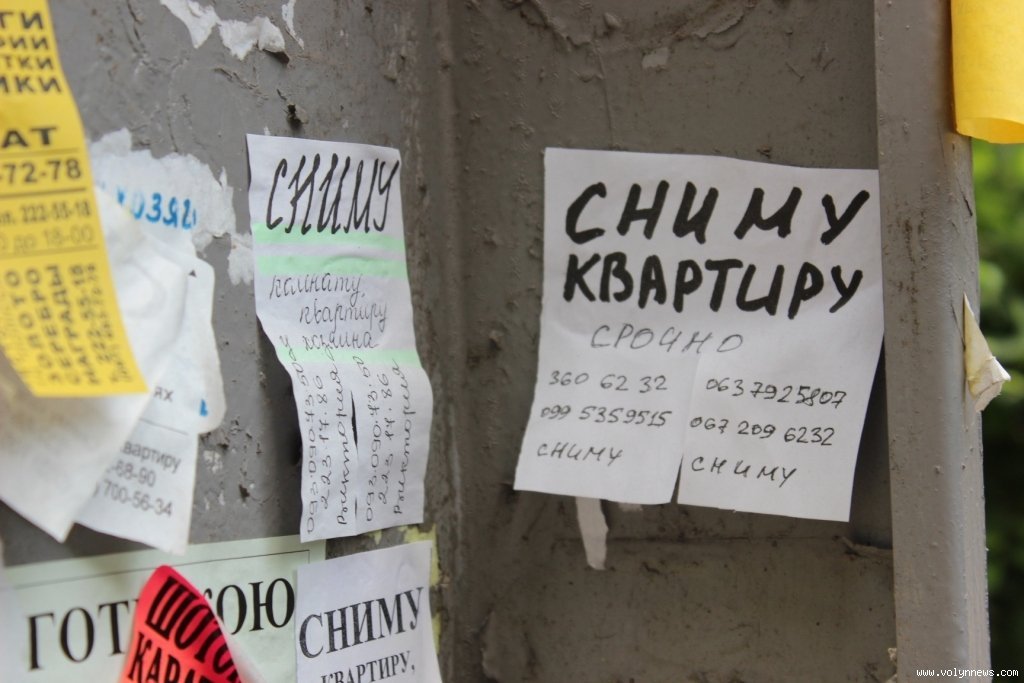 ГИ
РИИ
ТКИ
ИКИ
АТ
-72-78
л. 222-55-18
0 до 18-00
ЗОЛОТО
СЕРЕБРО
НАГРАДЫ
ХОЗЯ
ях
квартиру
-68-90
) 700-56-34
СНИМУ
комнату,
квартиру
у хозяина
093.090.73.50
223.17.86
Виктория
093.090.73.50
223.17.86
Виктория
СНИМУ
КВАРТИРУ
СРОЧНО
360 62 32
099 5359515
СНИМУ
063 7925807
067 209 6232
СНИМУ
ГОТ
ОЮ
ШОУ
КАРА
СНИМУ
КВАРТИРУ,
www.volynnews.com